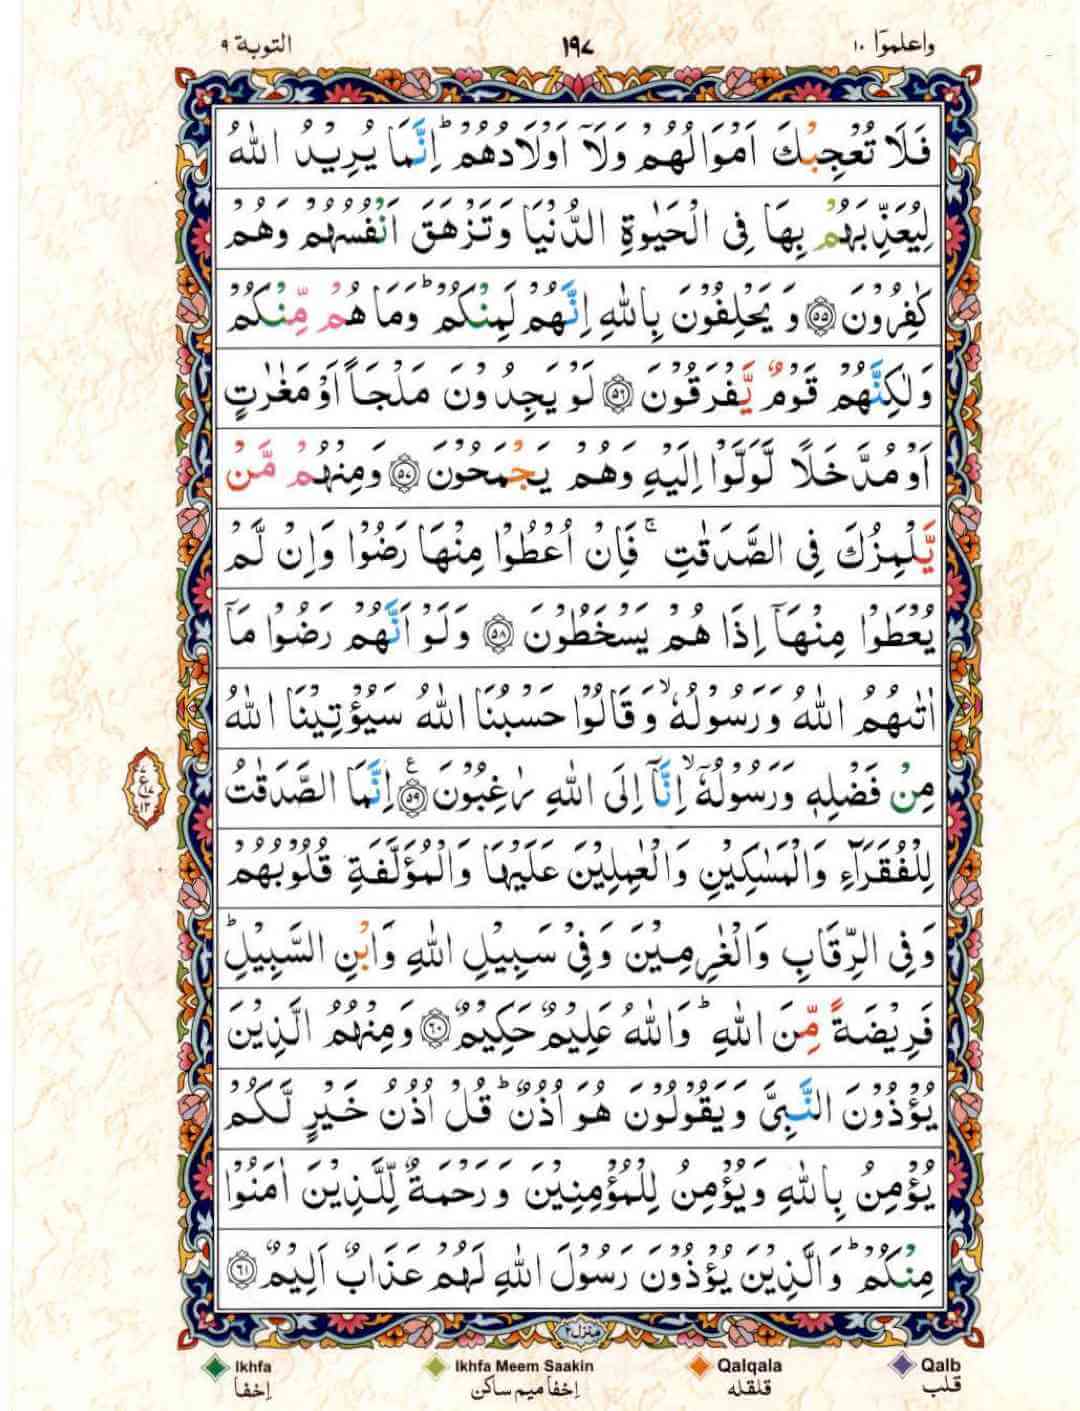 واعلموٓا ١٠
١٩٧
التوبة ٩
فَلَا تُعْجِبْكَ اَمْوَالُهُمْ وَلَاۤ اَوْلَادُهُمْ ؕ اِنَّمَا يُرِيْدُ اللّٰهُ
لِيُعَذِّبَهُمْ بِهَا فِى الْحَيٰوةِ الدُّنْيَا وَتَزْهَقَ اَنْفُسُهُمْ وَهُمْ
كٰفِرُوْنَ ﴿٥٥﴾ وَيَحْلِفُوْنَ بِاللّٰهِ اِنَّهُمْ لَمِنْكُمْ ؕ وَمَا هُمْ مِّنْكُمْ
وَلٰكِنَّهُمْ قَوْمٌ يَّفْرَقُوْنَ ﴿٥٦﴾ لَوْ يَجِدُوْنَ مَلْجَاً اَوْ مَغٰرٰتٍ
اَوْ مُدَّخَلًا لَّوَلَّوْا اِلَيْهِ وَهُمْ يَجْمَحُوْنَ ﴿٥٧﴾ وَمِنْهُمْ مَّنْ
يَّلْمِزُكَ فِى الصَّدَقٰتِ ۚ فَاِنْ اُعْطُوْا مِنْهَا رَضُوْا وَاِنْ لَّمْ
يُعْطَوْا مِنْهَاۤ اِذَا هُمْ يَسْخَطُوْنَ ﴿٥٨﴾ وَلَوْ اَنَّهُمْ رَضُوْا مَاۤ
اٰتٰىهُمُ اللّٰهُ وَرَسُوْلُهٗ ۙ وَقَالُوْا حَسْبُنَا اللّٰهُ سَيُؤْتِيْنَا اللّٰهُ
مِنْ فَضْلِهٖ وَرَسُوْلُهٗۤ ۙ اِنَّاۤ اِلَى اللّٰهِ رٰغِبُوْنَ ﴿٥٩﴾ ع اِنَّمَا الصَّدَقٰتُ
٧ ع ١٧ ١٣
لِلْفُقَرَآءِ وَالْمَسٰكِيْنِ وَالْعٰمِلِيْنَ عَلَيْهَا وَالْمُؤَلَّفَةِ قُلُوْبُهُمْ
وَفِى الرِّقَابِ وَالْغٰرِمِيْنَ وَفِىْ سَبِيْلِ اللّٰهِ وَابْنِ السَّبِيْلِ ؕ
فَرِيْضَةً مِّنَ اللّٰهِ ؕ وَاللّٰهُ عَلِيْمٌ حَكِيْمٌ ﴿٦٠﴾ وَمِنْهُمُ الَّذِيْنَ
يُؤْذُوْنَ النَّبِىَّ وَيَقُوْلُوْنَ هُوَ اُذُنٌ ؕ قُلْ اُذُنُ خَيْرٍ لَّكُمْ
يُؤْمِنُ بِاللّٰهِ وَيُؤْمِنُ لِلْمُؤْمِنِيْنَ وَرَحْمَةٌ لِّلَّذِيْنَ اٰمَنُوْا
مِنْكُمْ ؕ وَالَّذِيْنَ يُؤْذُوْنَ رَسُوْلَ اللّٰهِ لَهُمْ عَذَابٌ اَلِيْمٌ ﴿٦١﴾
منزل ٢
Ikhfa Ikhfa Meem Saakin Qalqala Qalb
اِخفا اِخفا میم ساکن قلقله قلب